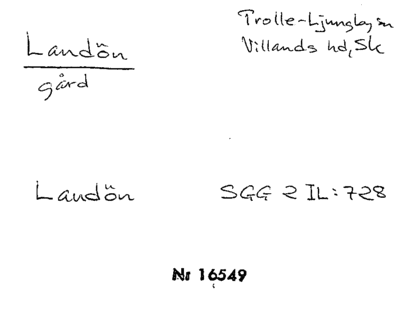 Landön
gård
Trolle-Ljungby sn
Villands hd, Sk
Landön
SGG 2 IL:728
Nr 16549